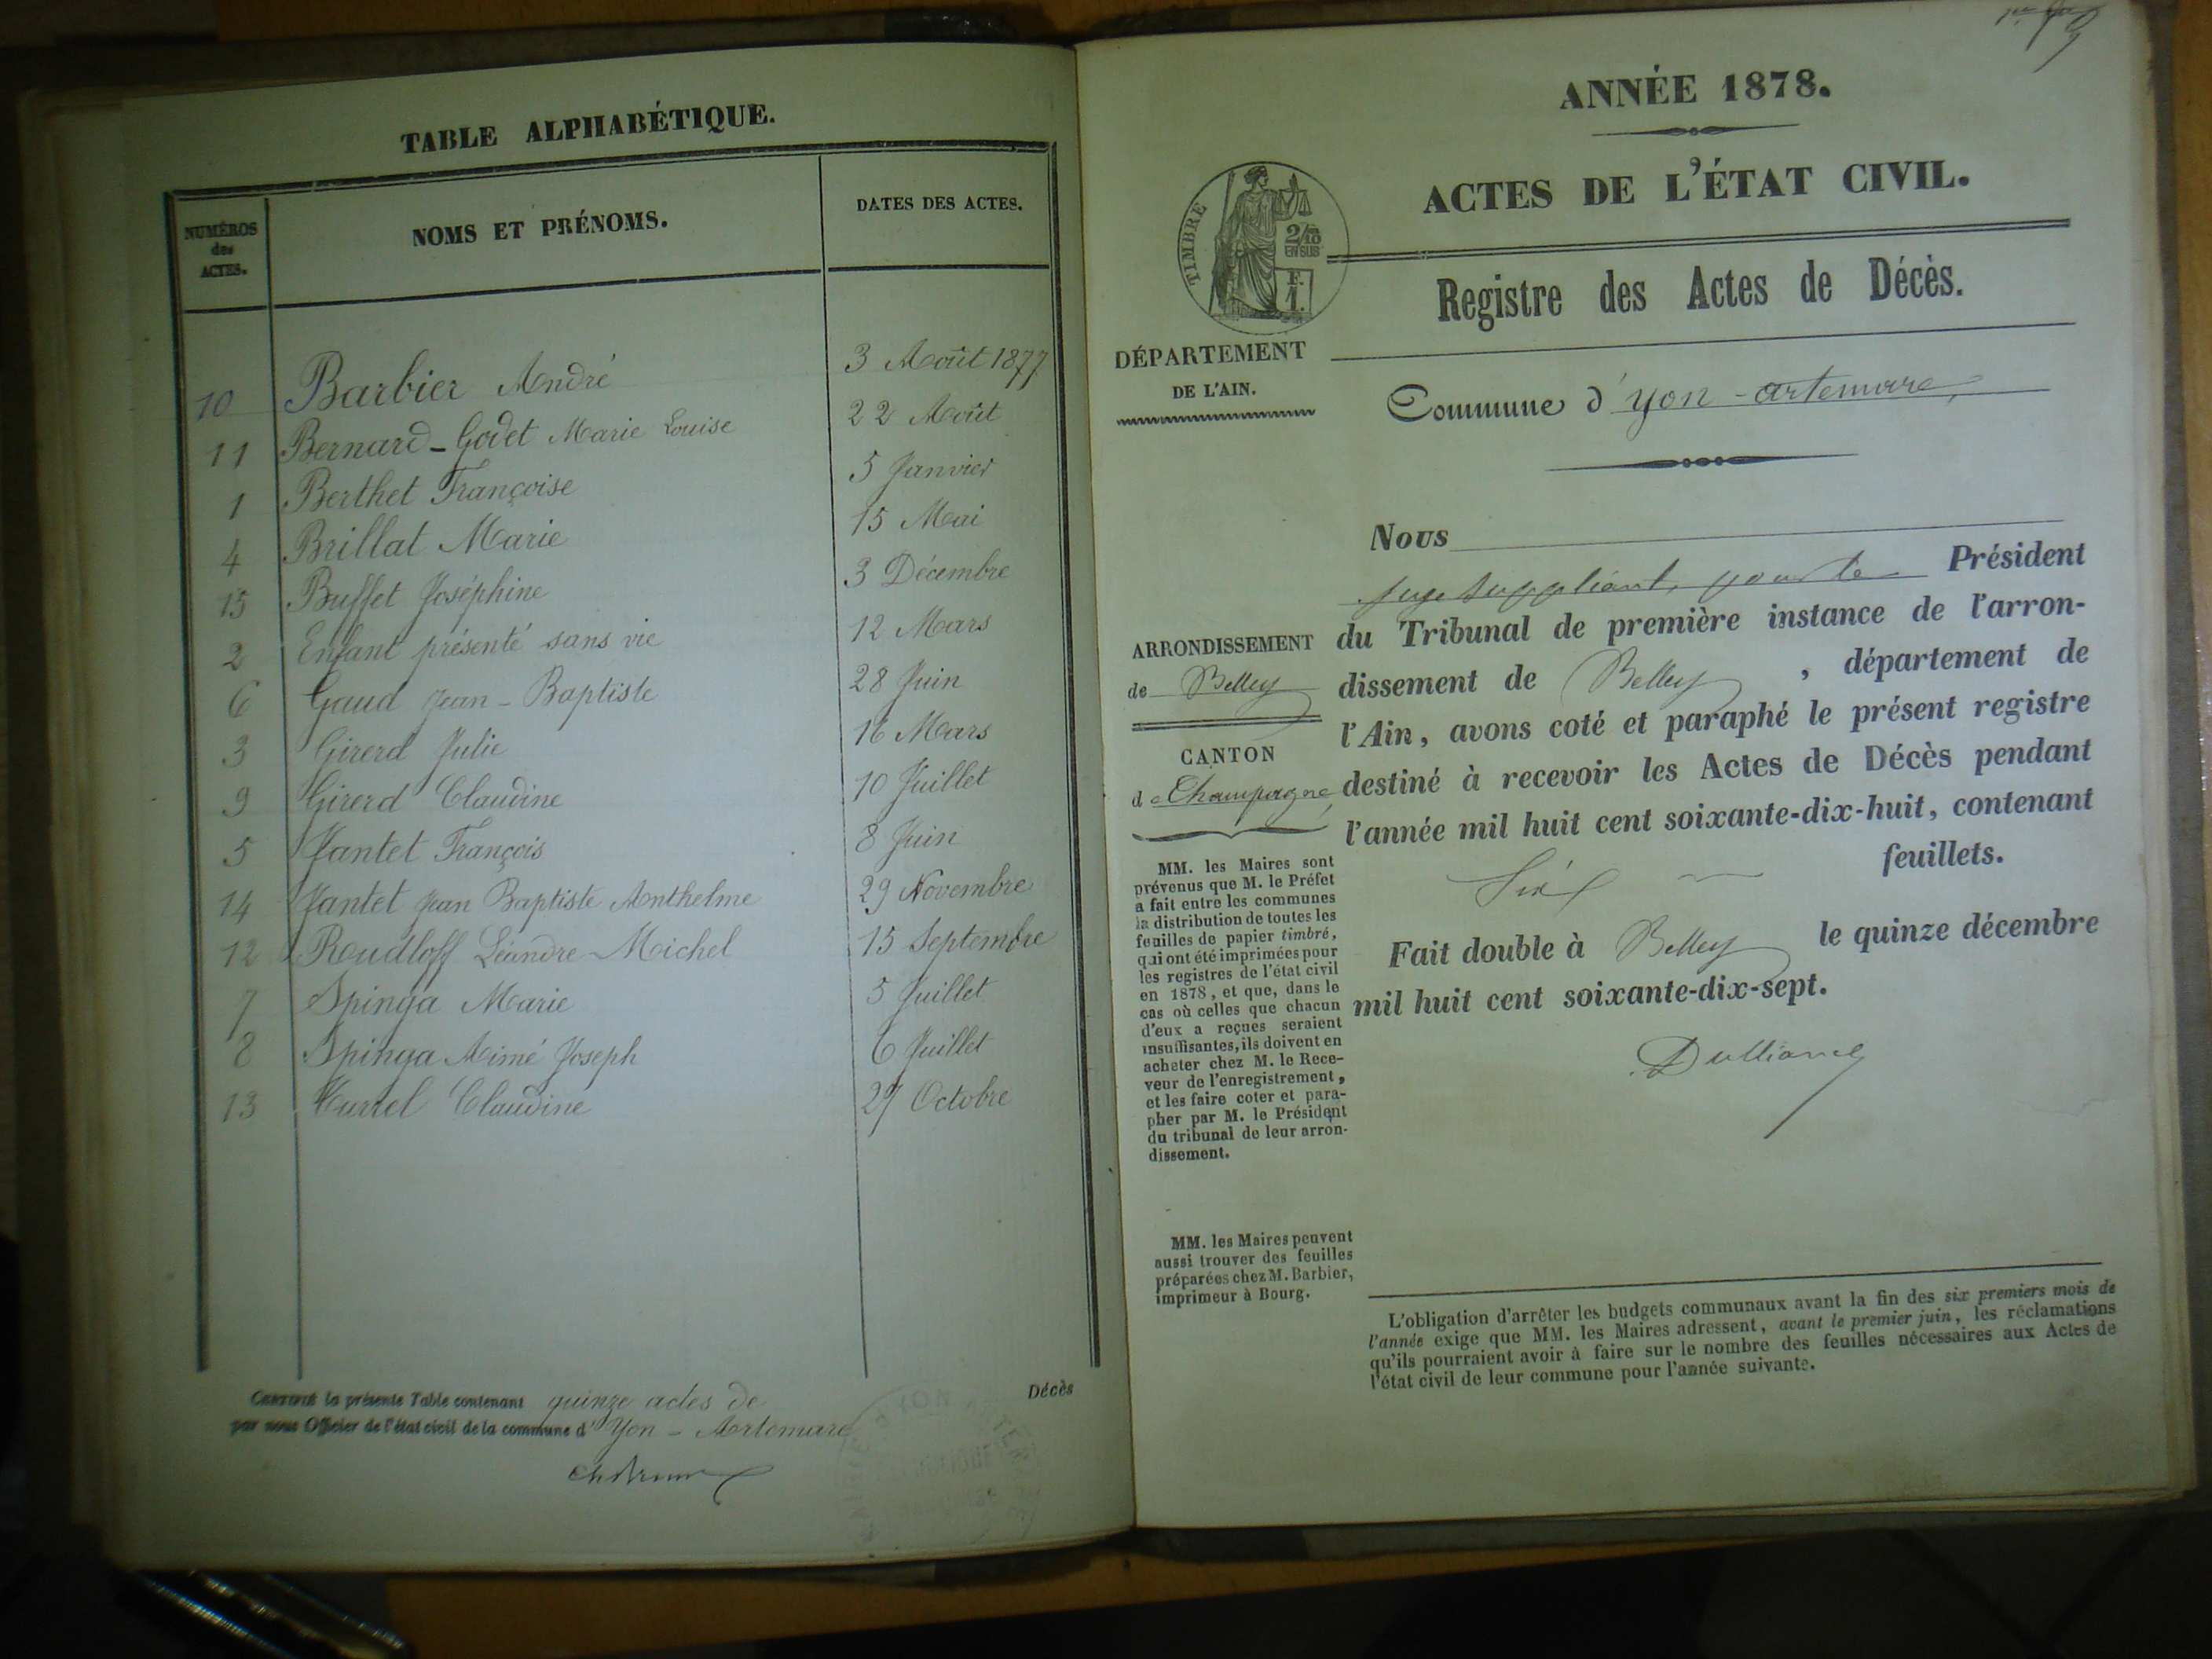 TABLE ALPHABÉTIQUE.
NUMÉROS des ACTES. NOMS ET PRÉNOMS. DATES DES ACTES.
10 Barbier André 3 Août 1877
11 Bernard-Godet Marie Louise 22 Août
1 Berthet Françoise 5 Janvier
4 Brillat Marie 15 Mai
15 Buffet Joséphine 3 Décembre
2 Enfant présenté sans vie 12 Mars
6 Gaud Jean-Baptiste 28 Juin
3 Girerd Julie 16 Mars
9 Girerd Claudine 10 Juillet
5 Jantet François 8 Juin
14 Jantet Jean Baptiste Anthelme 29 Novembre
12 Roudloff Léandre-Michel 15 Septembre
7 Spinga Marie 5 Juillet
8 Spinga Aimé Joseph 6 Juillet
13 Claudine 27 Octobre
CERTIFIÉ la présente Table contenant quinze actes de Décès
par nous Officier de l'état civil de la commune d'Yon-Artemare
ANNÉE 1878.
ACTES DE L'ÉTAT CIVIL.
TIMBRE
2/10
EN SUS
F.
1.
Registre des Actes de Décès.
DÉPARTEMENT
DE L'AIN.
Commune d'Yon-artemare,
Nous
juge suppléant, pour le Président
du Tribunal de première instance de l'arron-
dissement de Belley, département de
l'Ain, avons coté et paraphé le présent registre
destiné à recevoir les Actes de Décès pendant
l'année mil huit cent soixante-dix-huit, contenant
Six feuillets.
Fait double à Belley le quinze décembre
mil huit cent soixante-dix-sept.
ARRONDISSEMENT
de Belley
CANTON
de Champagne,
MM. les Maires sont
prévenus que M. le Préfet
a fait entre les communes
la distribution de toutes les
feuilles de papier timbré,
qui ont été imprimées pour
les registres de l'état civil
en 1878, et que, dans le
cas où celles que chacun
d'eux a reçues seraient
insuffisantes, ils doivent en
acheter chez M. le Rece-
veur de l'enregistrement,
et les faire coter et para-
pher par M. le Président
du tribunal de leur arron-
dissement.
MM. les Maires peuvent
aussi trouver des feuilles
préparées chez M. Barbier,
imprimeur à Bourg.
L'obligation d'arrêter les budgets communaux avant la fin des six premiers mois de
l'année exige que MM. les Maires adressent, avant le premier juin, les réclamations
qu'ils pourraient avoir à faire sur le nombre des feuilles nécessaires aux Actes de
l'état civil de leur commune pour l'année suivante.